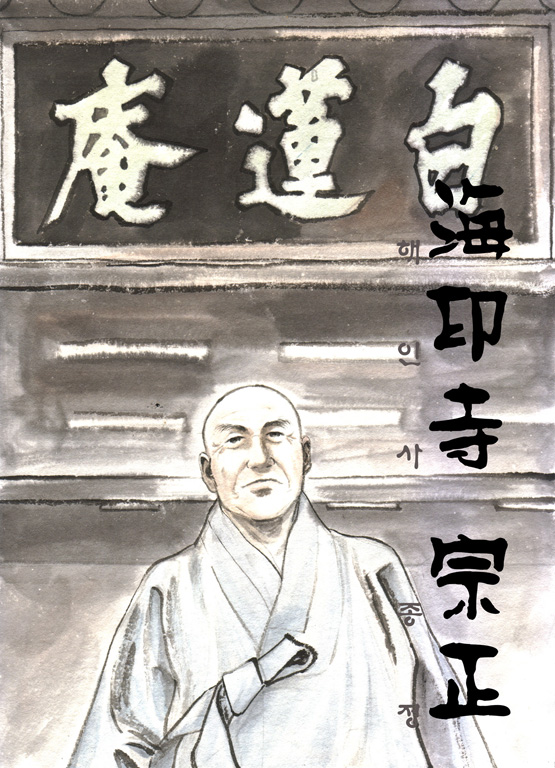 白蓮庵
海印寺 宗正
해인사 종정